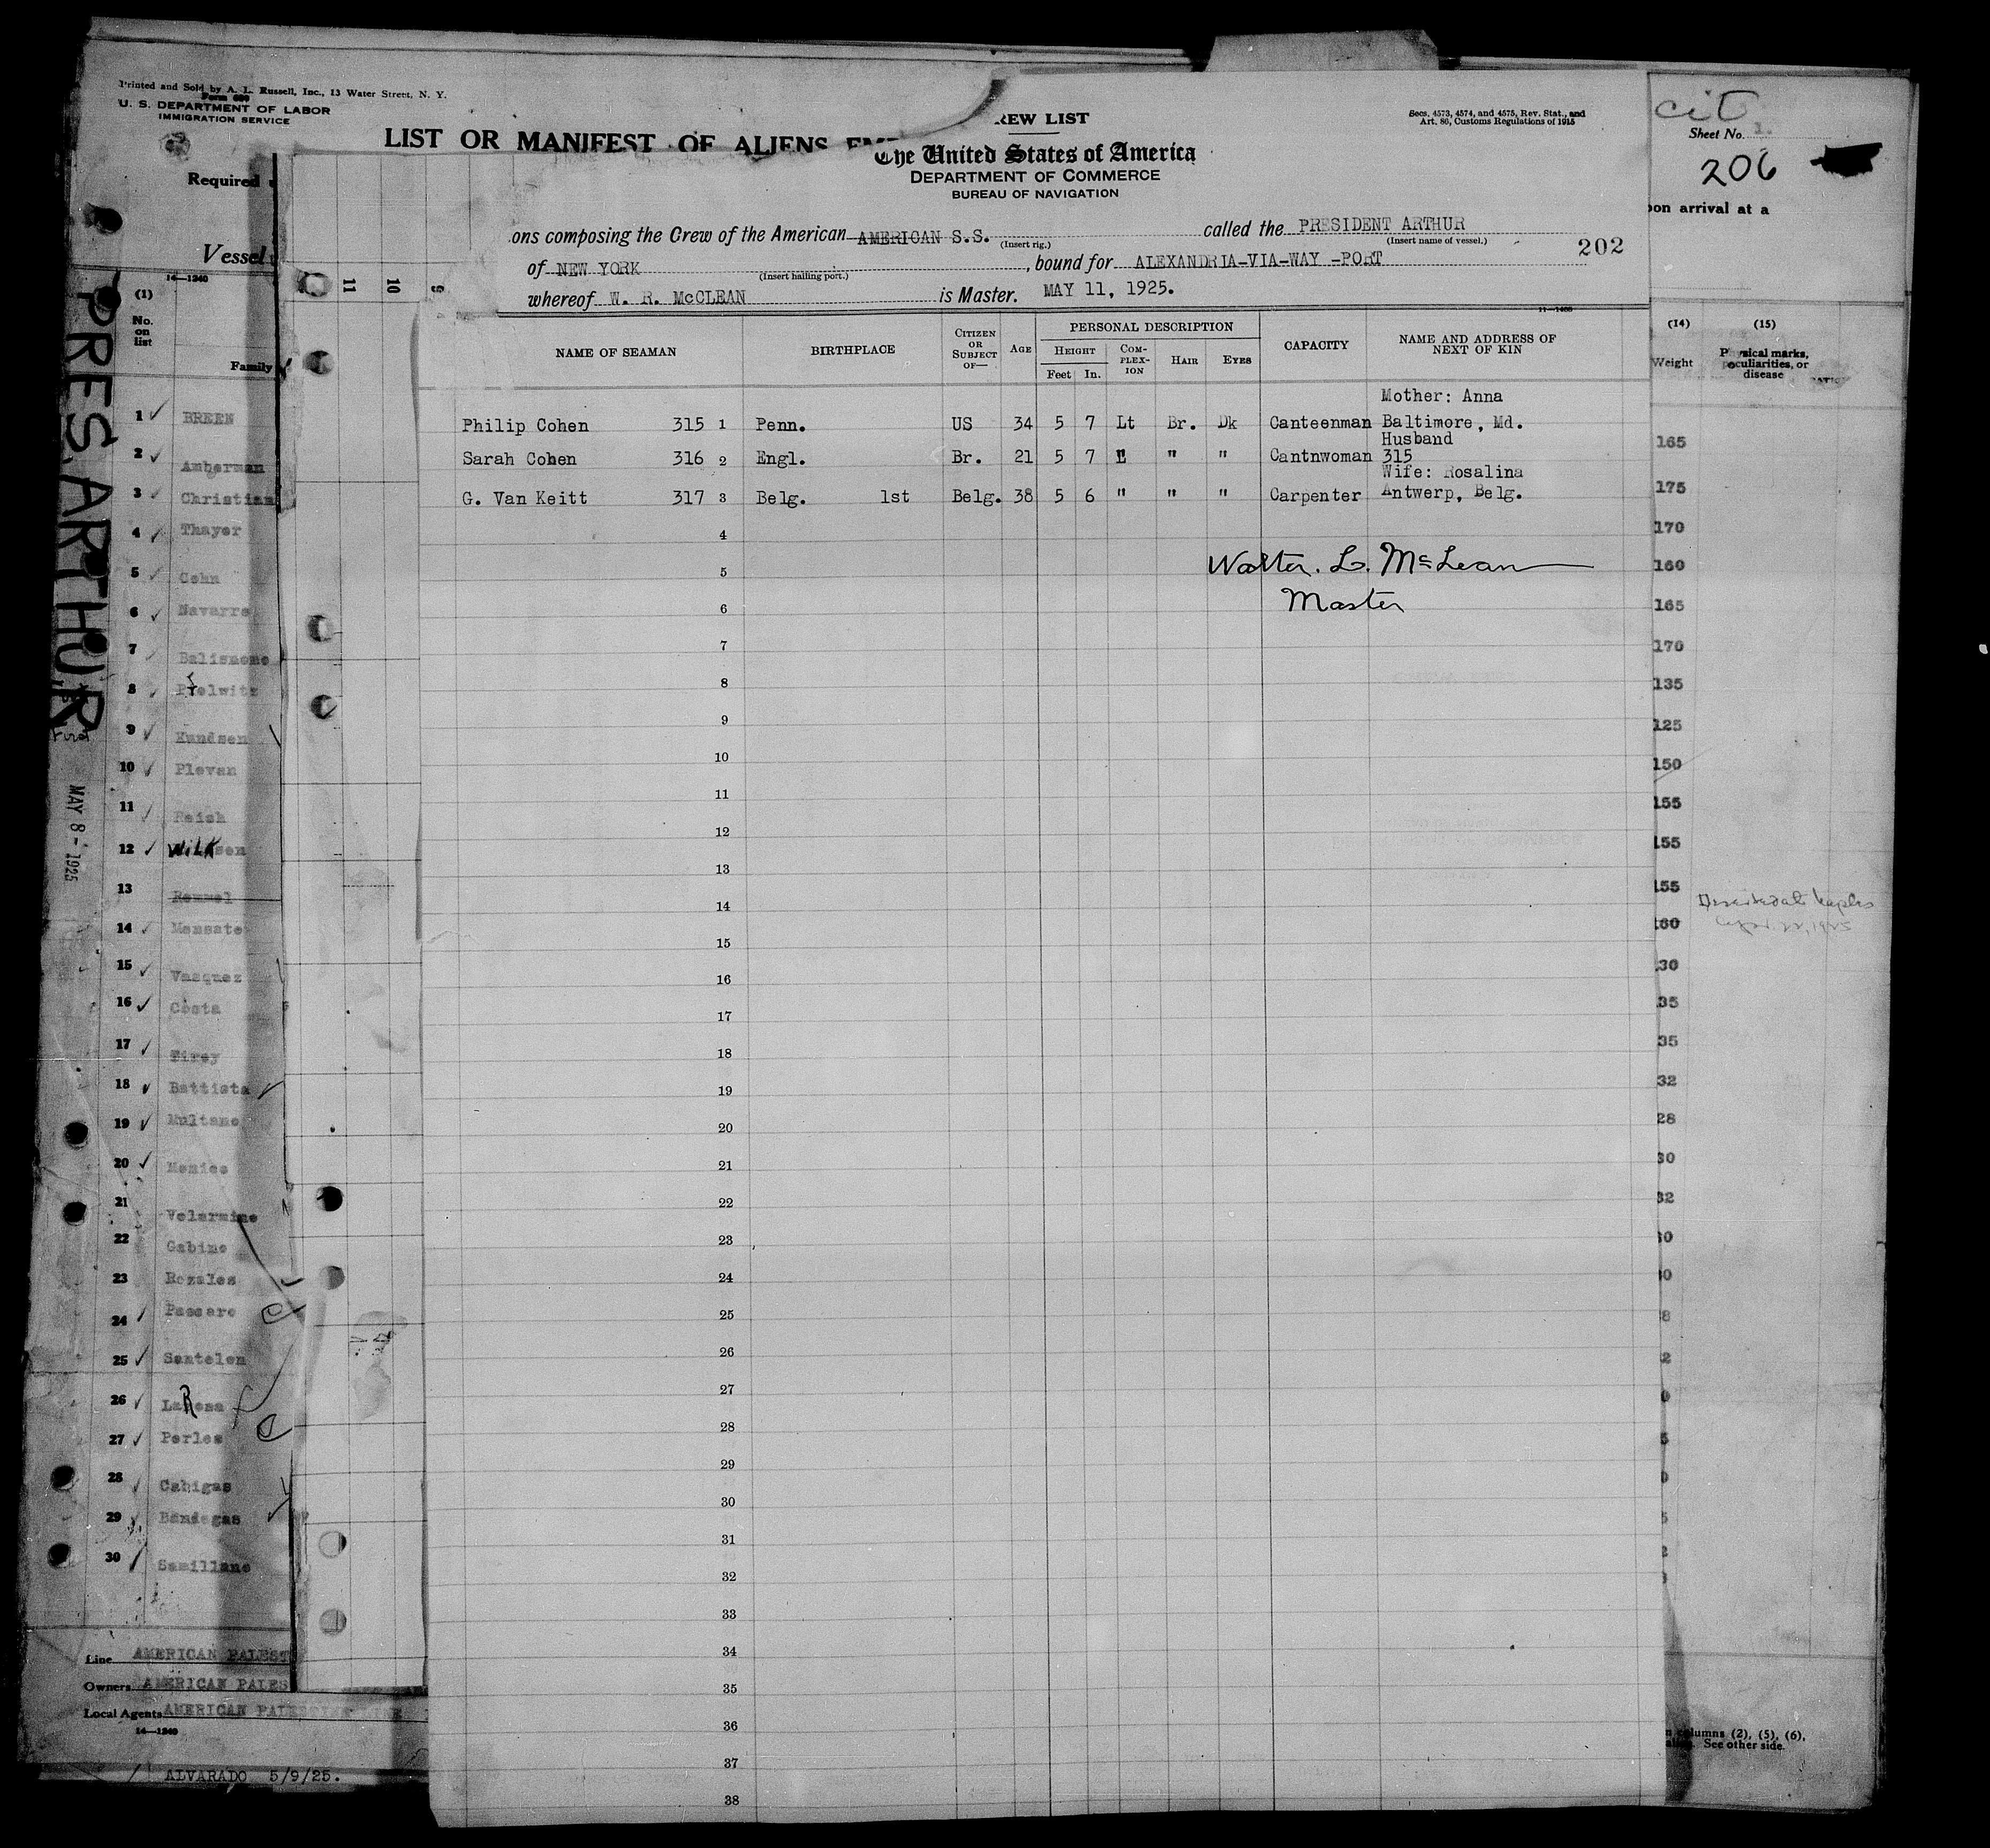 Printed and Sold by A. L. Russell, Inc., 13 Water Street, N. Y.
Form 680
U. S. DEPARTMENT OF LABOR
IMMIGRATION SERVICE
LIST OR MANIFEST OF ALIENS
Required
Vessel
14—1240
(1)
No. on list
Family
PRES. ARTHUR
MAY 8 - 1925
1 BREEN
2 Amberman
3 Christian
4 Thayer
5 Cohn
6 Navarre
7
8
9 Kundsen
10 Plevan
11 Reish
12 Wilk
13 Rommel
14 Monsate
15 Vasquez
16 Costa
17 Tirey
18 Battista
19 Multano
20
21
22 Gabino
23 Rozales
24 Passaro
25 Santelen
26 LaRosa
27 Perles
28 Cabigas
29 Bandagas
30 Samillano
Line AMERICAN PALEST
Owners AMERICAN PALES
Local Agents AMERICAN PALES
14—1240
ALVARADO 5/9/25.
11 10 9
REW LIST
Secs. 4573, 4574, and 4575, Rev. Stat., and
Art. 86, Customs Regulations of 1915
The United States of America
DEPARTMENT OF COMMERCE
BUREAU OF NAVIGATION
ons composing the Crew of the American AMERICAN S.S. (Insert rig.) called the PRESIDENT ARTHUR (Insert name of vessel.)
202
of NEW YORK (Insert hailing port.), bound for ALEXANDRIA-VIA-WAY -PORT
whereof W. R. McCLEAN is Master. MAY 11, 1925.
11—1466
NAME OF SEAMAN BIRTHPLACE CITIZEN OR SUBJECT OF— AGE PERSONAL DESCRIPTION CAPACITY NAME AND ADDRESS OF NEXT OF KIN
HEIGHT COMPLEXION HAIR EYES
Feet In.
Mother: Anna
Philip Cohen 315 1 Penn. US 34 5 7 Lt Br. Dk Canteenman Baltimore, Md.
Husband
Sarah Cohen 316 2 Engl. Br. 21 5 7 " " " Cantnwoman 315
Wife: Rosalina
G. Van Keitt 317 3 Belg. 1st Belg. 38 5 6 " " " Carpenter Antwerp, Belg.
4
5
Walter. L. McLean
6
Master
7
8
9
10
11
12
13
14
15
16
17
18
19
20
21
22
23
24
25
26
27
28
29
30
31
32
33
34
35
36
37
38
cit
Sheet No. 1.
206
pon arrival at a
(14) (15)
Weight Physical marks, peculiarities, or disease
165
175
170
160
165
170
135
125
150
155
155
155
160
30
35
35
32
28
30
32
n columns (2), (5), (6),
See other side.